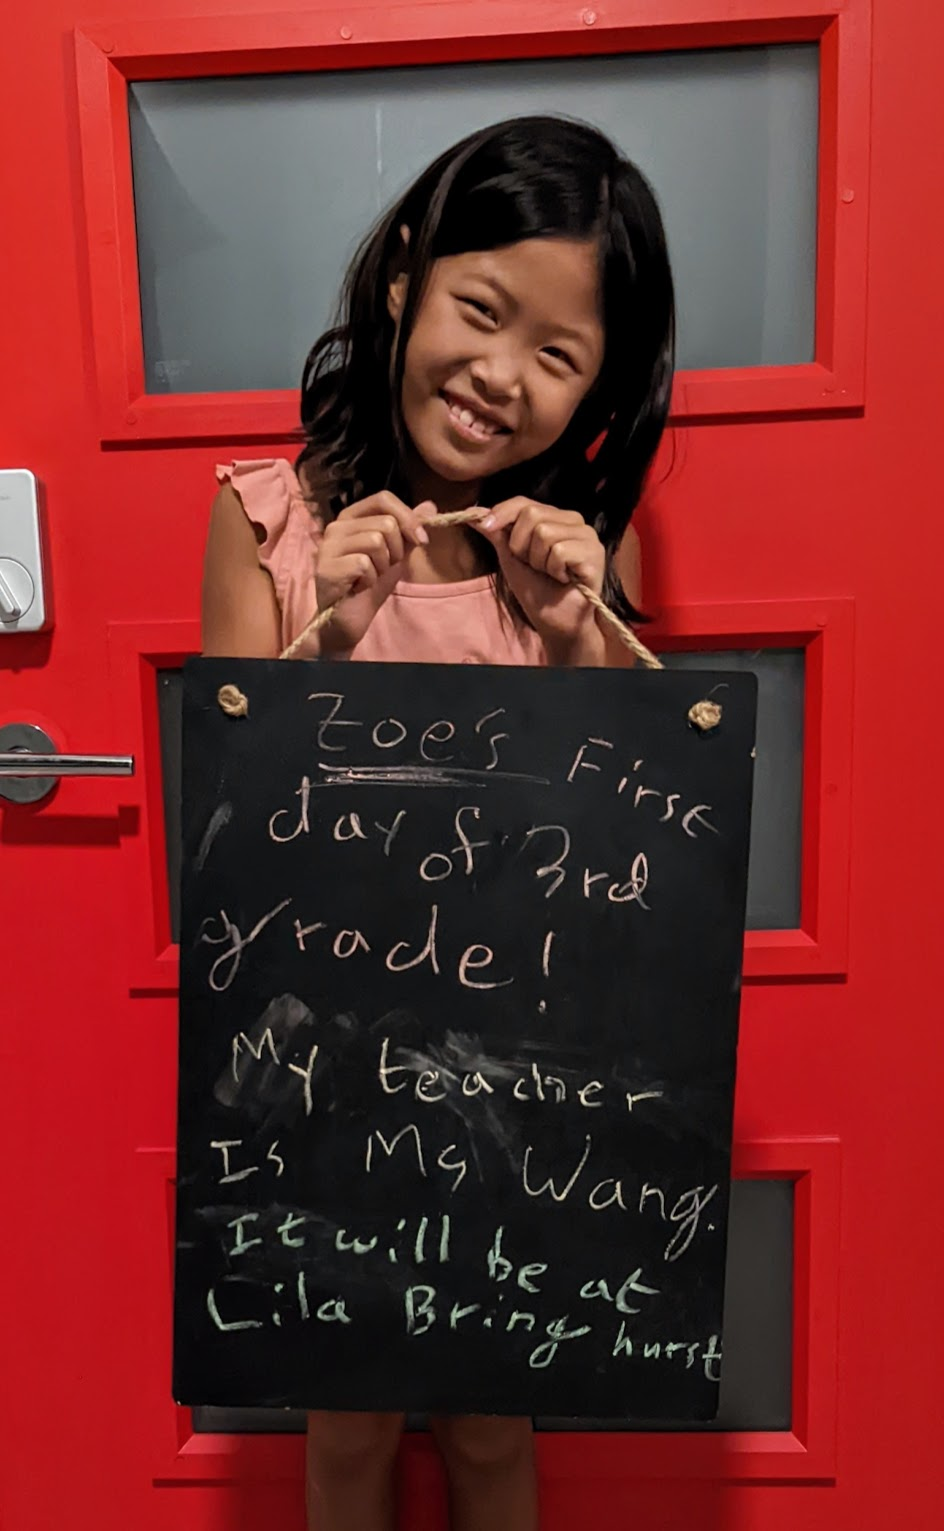 Zoe's First
day of 3rd
grade!
My teacher
Is Ms Wang.
It will be at
Lila Bringhurst